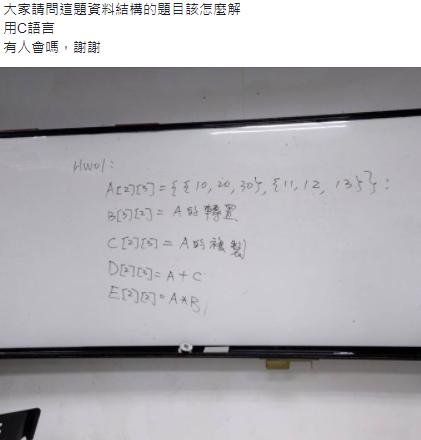 大家請問這題資料結構的題目該怎麼解
用C語言
有人會嗎，謝謝
HW01:
A[2][3] = {{10, 20, 30}, {11, 12, 13}};
B[3][2] = A的轉置
C[2][3] = A的複製
D[2][3] = A + C
E[2][2] = A*B